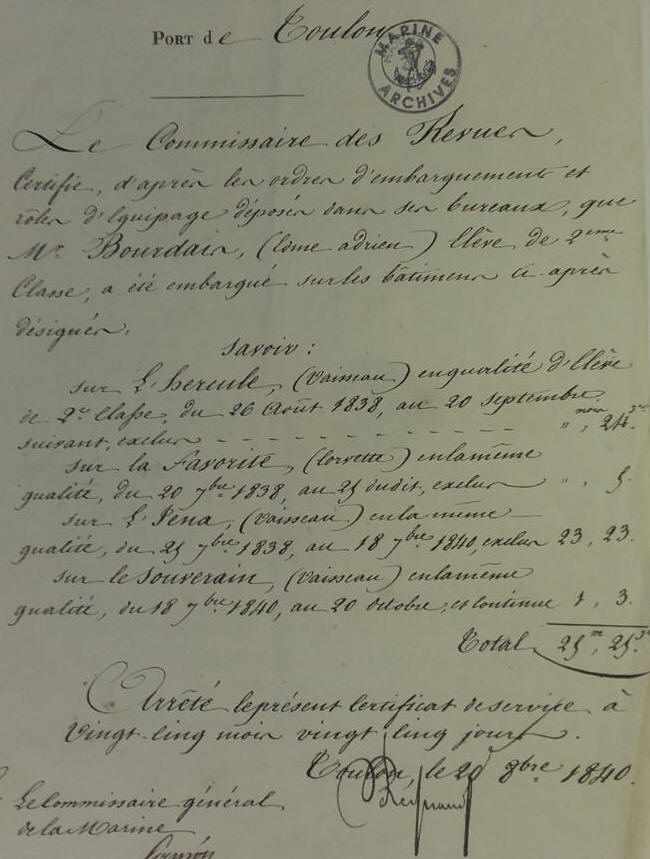 PORT de Toulon
MARINE
ARCHIVES
Le Commissaire des Revues,
Certifie, d'après les ordres d'embarquement et
rôles d'Equipage déposés dans ses bureaux, que
Mr. Bourdais, (Côme adrien) Elève de 2eme
Classe, a été embarqué sur les bâtimens ci-après
désignés.
Savoir:
Sur L'hercule, (Vaisseau) en qualité d'Elève
de 2e. Classe, du 26 Août 1838, au 20 septembre
suivant, exclus - - - - - - - - - - " mois, 24 Jrs.
Sur la Favorite, (Corvette) en la même
qualité, du 20 7bre. 1838, au 25 dudit, exclus " , 5.
Sur L'Iena, (Vaisseau) en la même
qualité, du 25 7bre. 1838, au 18 7bre. 1840, exclus 23, 23.
Sur le Souverain, (Vaisseau) en la même
qualité, du 18 7bre. 1840, au 20 Octobre, et Continue 1, 3.
Total 25 m, 25 Jrs.
Arrêté le présent Certificat de service à
Vingt-Cinq mois vingt Cinq jours.
Toulon, le 20 8bre. 1840.
Le Commissaire général
de la Marine